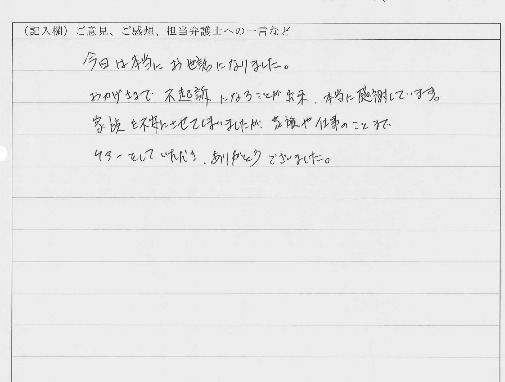 （記入欄）ご意見、ご感想、担当弁護士への一言など
今回は本当にお世話になりました。
おかげさまで不起訴になることが出来、本当に感謝しています。
家族を不安にさせてしまいましたが、家族や仕事のことまで
ケアーをしていただき、ありがとうございました。